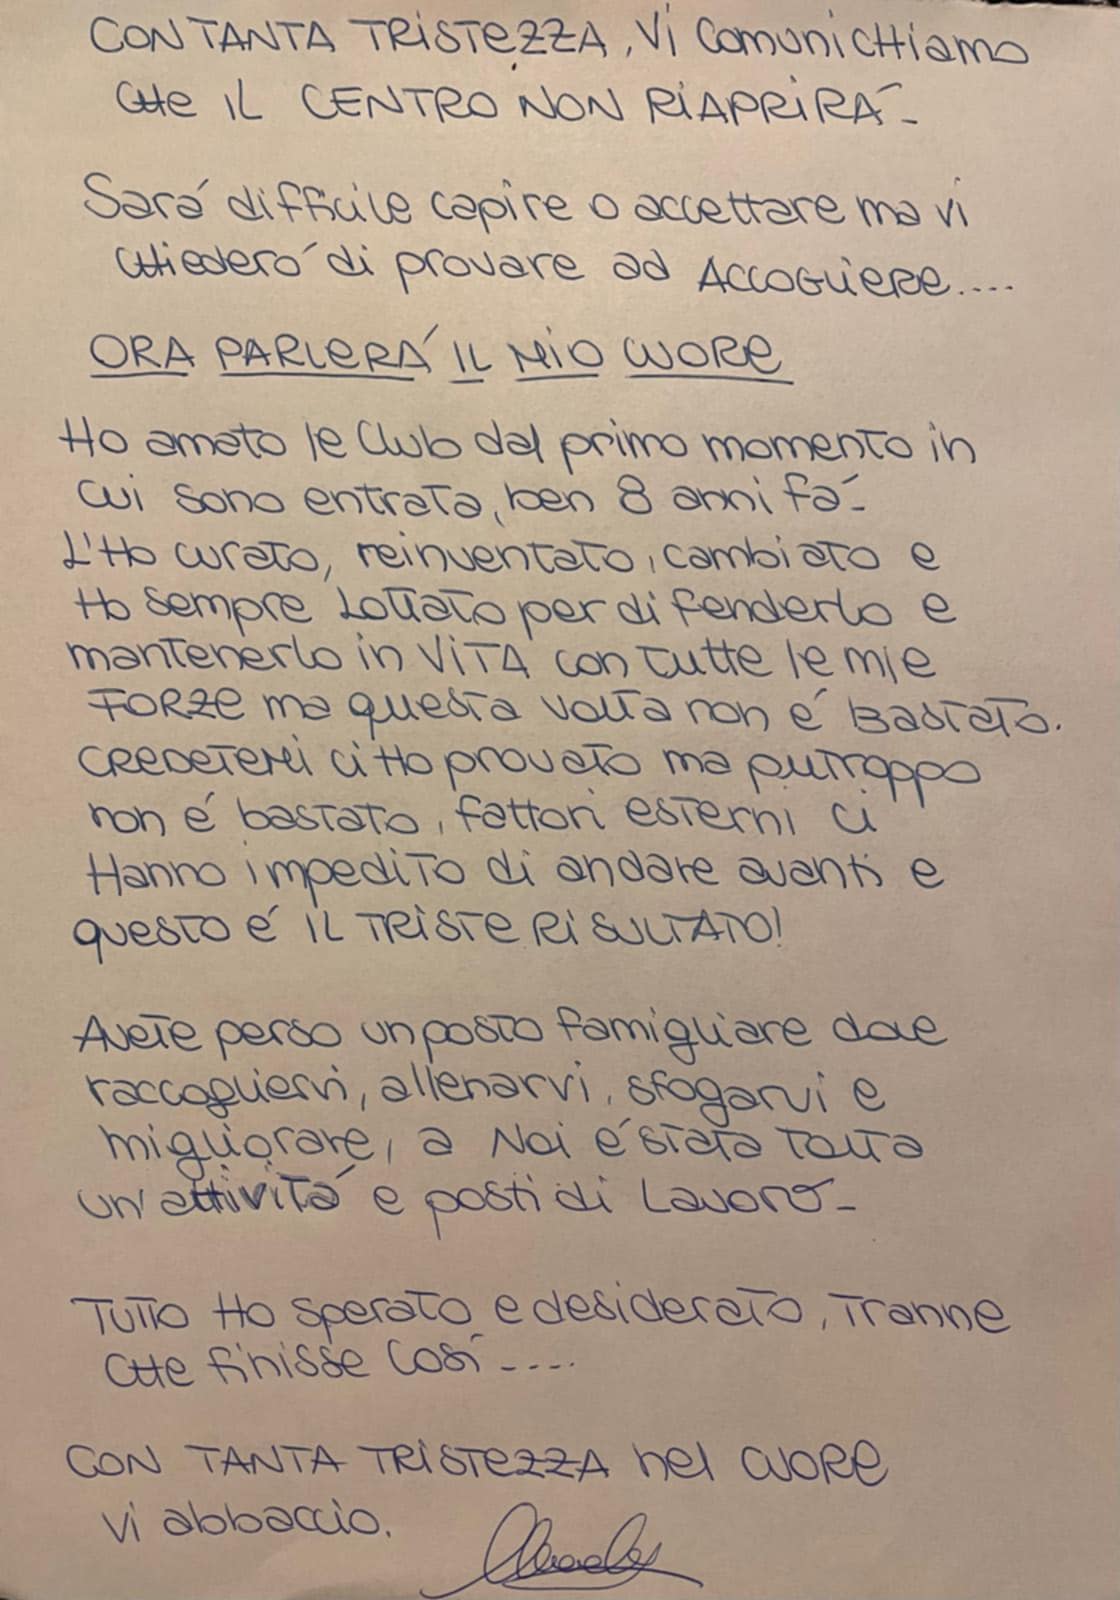 CON TANTA TRISTEZZA, Vi ComuniCHiamo
CHe IL CENTRO NON RiAPRiRÁ-
Sará difficile capire o accettare ma vi
CHiederó di provare ad ACCOGLiERE....
ORA PARLERÁ IL MIO CUORE
Ho amato le Club dal primo momento in
cui sono entrata, ben 8 anni fá-
L'Ho curato, reinventato, cambiato e
Ho sempre Lottato per difenderlo e
mantenerlo in ViTA con tutte le mie
FORZe ma questa volta non é Bastato.
CREDETEMi ci Ho provato ma putroppo
non é bastato, fattori esterni ci
Hanno impedito di andare avanti e
questo é IL TRiSTe RiSULTATO!
Avete perso un posto famigliare dove
raccogliervi, allenarvi, sfogarvi e
migliorare, a Noi é stata tolta
un'attivitá e posti di Lavoro-
Tutto Ho sperato e desiderato, Tranne
CHe finisse Cosí----.
CON TANTA TRiSTEZZA nel CUORE
vi abbaccio.